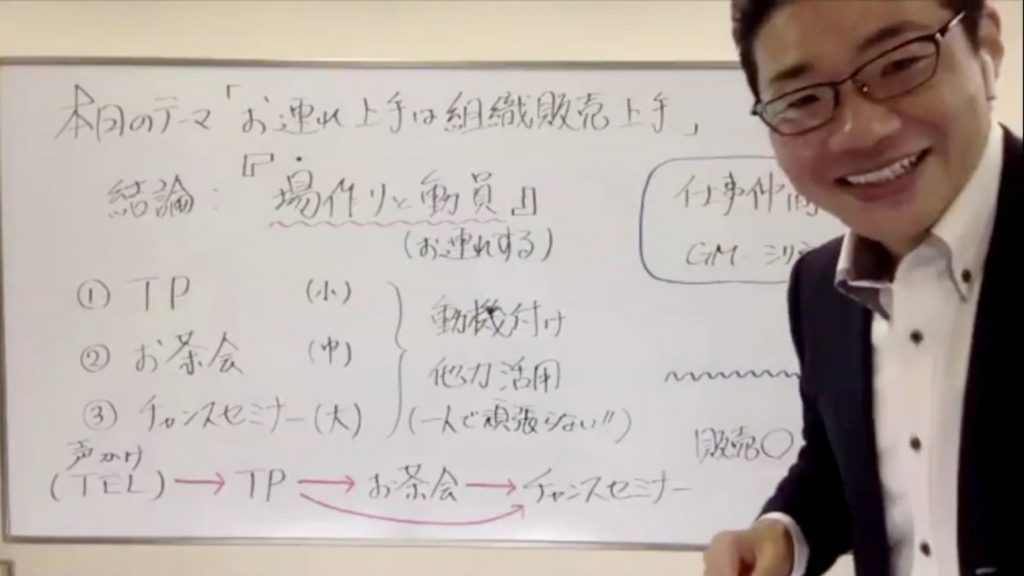 本日のテーマ「お連れ上手は組織販売上手」
結論:『場作りと動員』
(お連れする)
① TP (小)
② お茶会 (中)
③ チャンスセミナー(大)
動機付け
他力活用
(一人で頑張らない!!)
声かけ
(TEL)→TP→お茶会→チャンスセミナー
仕事仲間
GM
販売○